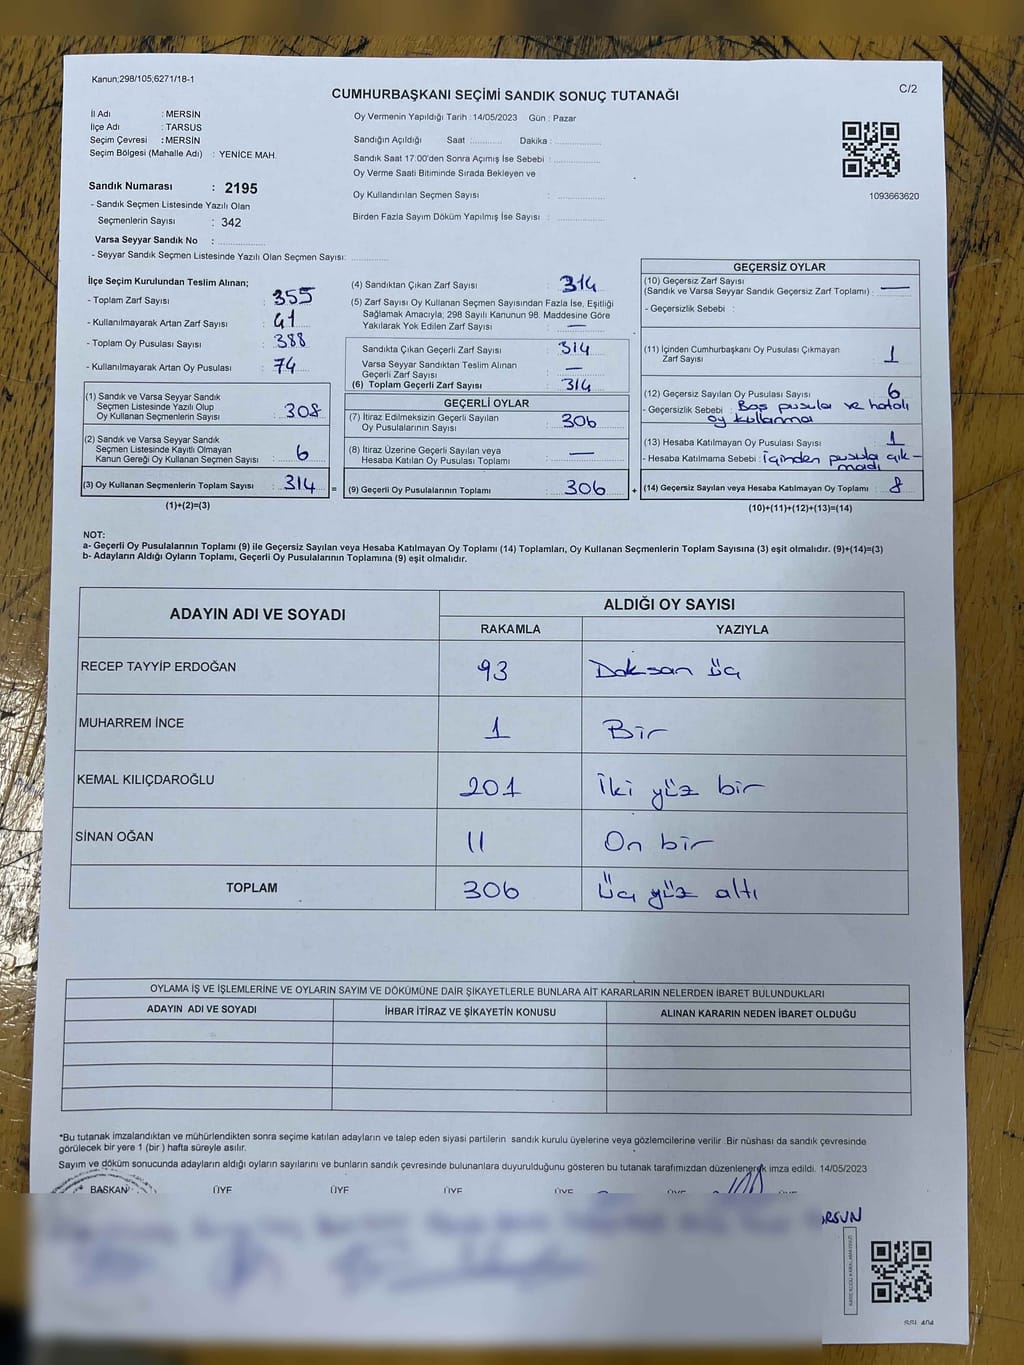 Kanun;298/105;6271/18-1
C/2
CUMHURBAŞKANI SEÇİMİ SANDIK SONUÇ TUTANAĞI
İl Adı : MERSİN
İlçe Adı : TARSUS
Seçim Çevresi : MERSİN
Seçim Bölgesi (Mahalle Adı) : YENİCE MAH.
Sandık Numarası : 2195
- Sandık Seçmen Listesinde Yazılı Olan
Seçmenlerin Sayısı : 342
Varsa Seyyar Sandık No :
- Seyyar Sandık Seçmen Listesinde Yazılı Olan Seçmen Sayısı:
Oy Vermenin Yapıldığı Tarih : 14/05/2023 Gün : Pazar
Sandığın Açıldığı Saat Dakika :
Sandık Saat 17:00'den Sonra Açımış İse Sebebi :
Oy Verme Saati Bitiminde Sırada Bekleyen ve
Oy Kullandırılan Seçmen Sayısı :
Birden Fazla Sayım Döküm Yapılmış İse Sayısı :
1093663620
İlçe Seçim Kurulundan Teslim Alınan;
- Toplam Zarf Sayısı : 355
- Kullanılmayarak Artan Zarf Sayısı : 41
- Toplam Oy Pusulası Sayısı : 388
- Kullanılmayarak Artan Oy Pusulası : 74
(1) Sandık ve Varsa Seyyar Sandık
Seçmen Listesinde Yazılı Olup
Oy Kullanan Seçmenlerin Sayısı : 308
(2) Sandık ve Varsa Seyyar Sandık
Seçmen Listesinde Kayıtlı Olmayan
Kanun Gereği Oy Kullanan Seçmen Sayısı : 6
(3) Oy Kullanan Seçmenlerin Toplam Sayısı : 314
(1)+(2)=(3)
=
(4) Sandıktan Çıkan Zarf Sayısı : 314
(5) Zarf Sayısı Oy Kullanan Seçmen Sayısından Fazla İse, Eşitliği
Sağlamak Amacıyla; 298 Sayılı Kanunun 98. Maddesine Göre
Yakılarak Yok Edilen Zarf Sayısı : —
Sandıkta Çıkan Geçerli Zarf Sayısı : 314
Varsa Seyyar Sandıktan Teslim Alınan
Geçerli Zarf Sayısı : —
(6) Toplam Geçerli Zarf Sayısı : 314
GEÇERLİ OYLAR
(7) İtiraz Edilmeksizin Geçerli Sayılan
Oy Pusulalarının Sayısı : 306
(8) İtiraz Üzerine Geçerli Sayılan veya
Hesaba Katılan Oy Pusulası Toplamı : —
(9) Geçerli Oy Pusulalarının Toplamı : 306
+
GEÇERSİZ OYLAR
(10) Geçersiz Zarf Sayısı
(Sandık ve Varsa Seyyar Sandık Geçersiz Zarf Toplamı) : —
- Geçersizlik Sebebi :
(11) İçinden Cumhurbaşkanı Oy Pusulası Çıkmayan
Zarf Sayısı : 1
(12) Geçersiz Sayılan Oy Pusulası Sayısı : 6
- Geçersizlik Sebebi : Boş pusula ve hatalı
oy kullanma
(13) Hesaba Katılmayan Oy Pusulası Sayısı : 1
- Hesaba Katılmama Sebebi : İçinden pusula çık-
madı
(14) Geçersiz Sayılan veya Hesaba Katılmayan Oy Toplamı : 8
(10)+(11)+(12)+(13)=(14)
NOT:
a- Geçerli Oy Pusulalarının Toplamı (9) ile Geçersiz Sayılan veya Hesaba Katılmayan Oy Toplamı (14) Toplamları, Oy Kullanan Seçmenlerin Toplam Sayısına (3) eşit olmalıdır. (9)+(14)=(3)
b- Adayların Aldığı Oyların Toplamı, Geçerli Oy Pusulalarının Toplamına (9) eşit olmalıdır.
ADAYIN ADI VE SOYADI
ALDIĞI OY SAYISI
RAKAMLA YAZIYLA
RECEP TAYYİP ERDOĞAN 93 Doksan üç
MUHARREM İNCE 1 Bir
KEMAL KILIÇDAROĞLU 201 İki yüz bir
SİNAN OĞAN 11 On bir
TOPLAM 306 Üç yüz altı
OYLAMA İŞ VE İŞLEMLERİNE VE OYLARIN SAYIM VE DÖKÜMÜNE DAİR ŞİKAYETLERLE BUNLARA AİT KARARLARIN NELERDEN İBARET BULUNDUKLARI
ADAYIN ADI VE SOYADI İHBAR İTİRAZ VE ŞİKAYETİN KONUSU ALINAN KARARIN NEDEN İBARET OLDUĞU
*Bu tutanak imzalandıktan ve mühürlendikten sonra seçime katılan adayların ve talep eden siyasi partilerin sandık kurulu üyelerine veya gözlemcilerine verilir .Bir nüshası da sandık çevresinde
görülecek bir yere 1 (bir ) hafta süreyle asılır.
Sayım ve döküm sonucunda adayların aldığı oyların sayılarını ve bunların sandık çevresinde bulunanlara duyurulduğunu gösteren bu tutanak tarafımızdan düzenlenerek imza edildi. 14/05/2023
BAŞKAN ÜYE ÜYE ÜYE ÜYE ÜYE ÜYE